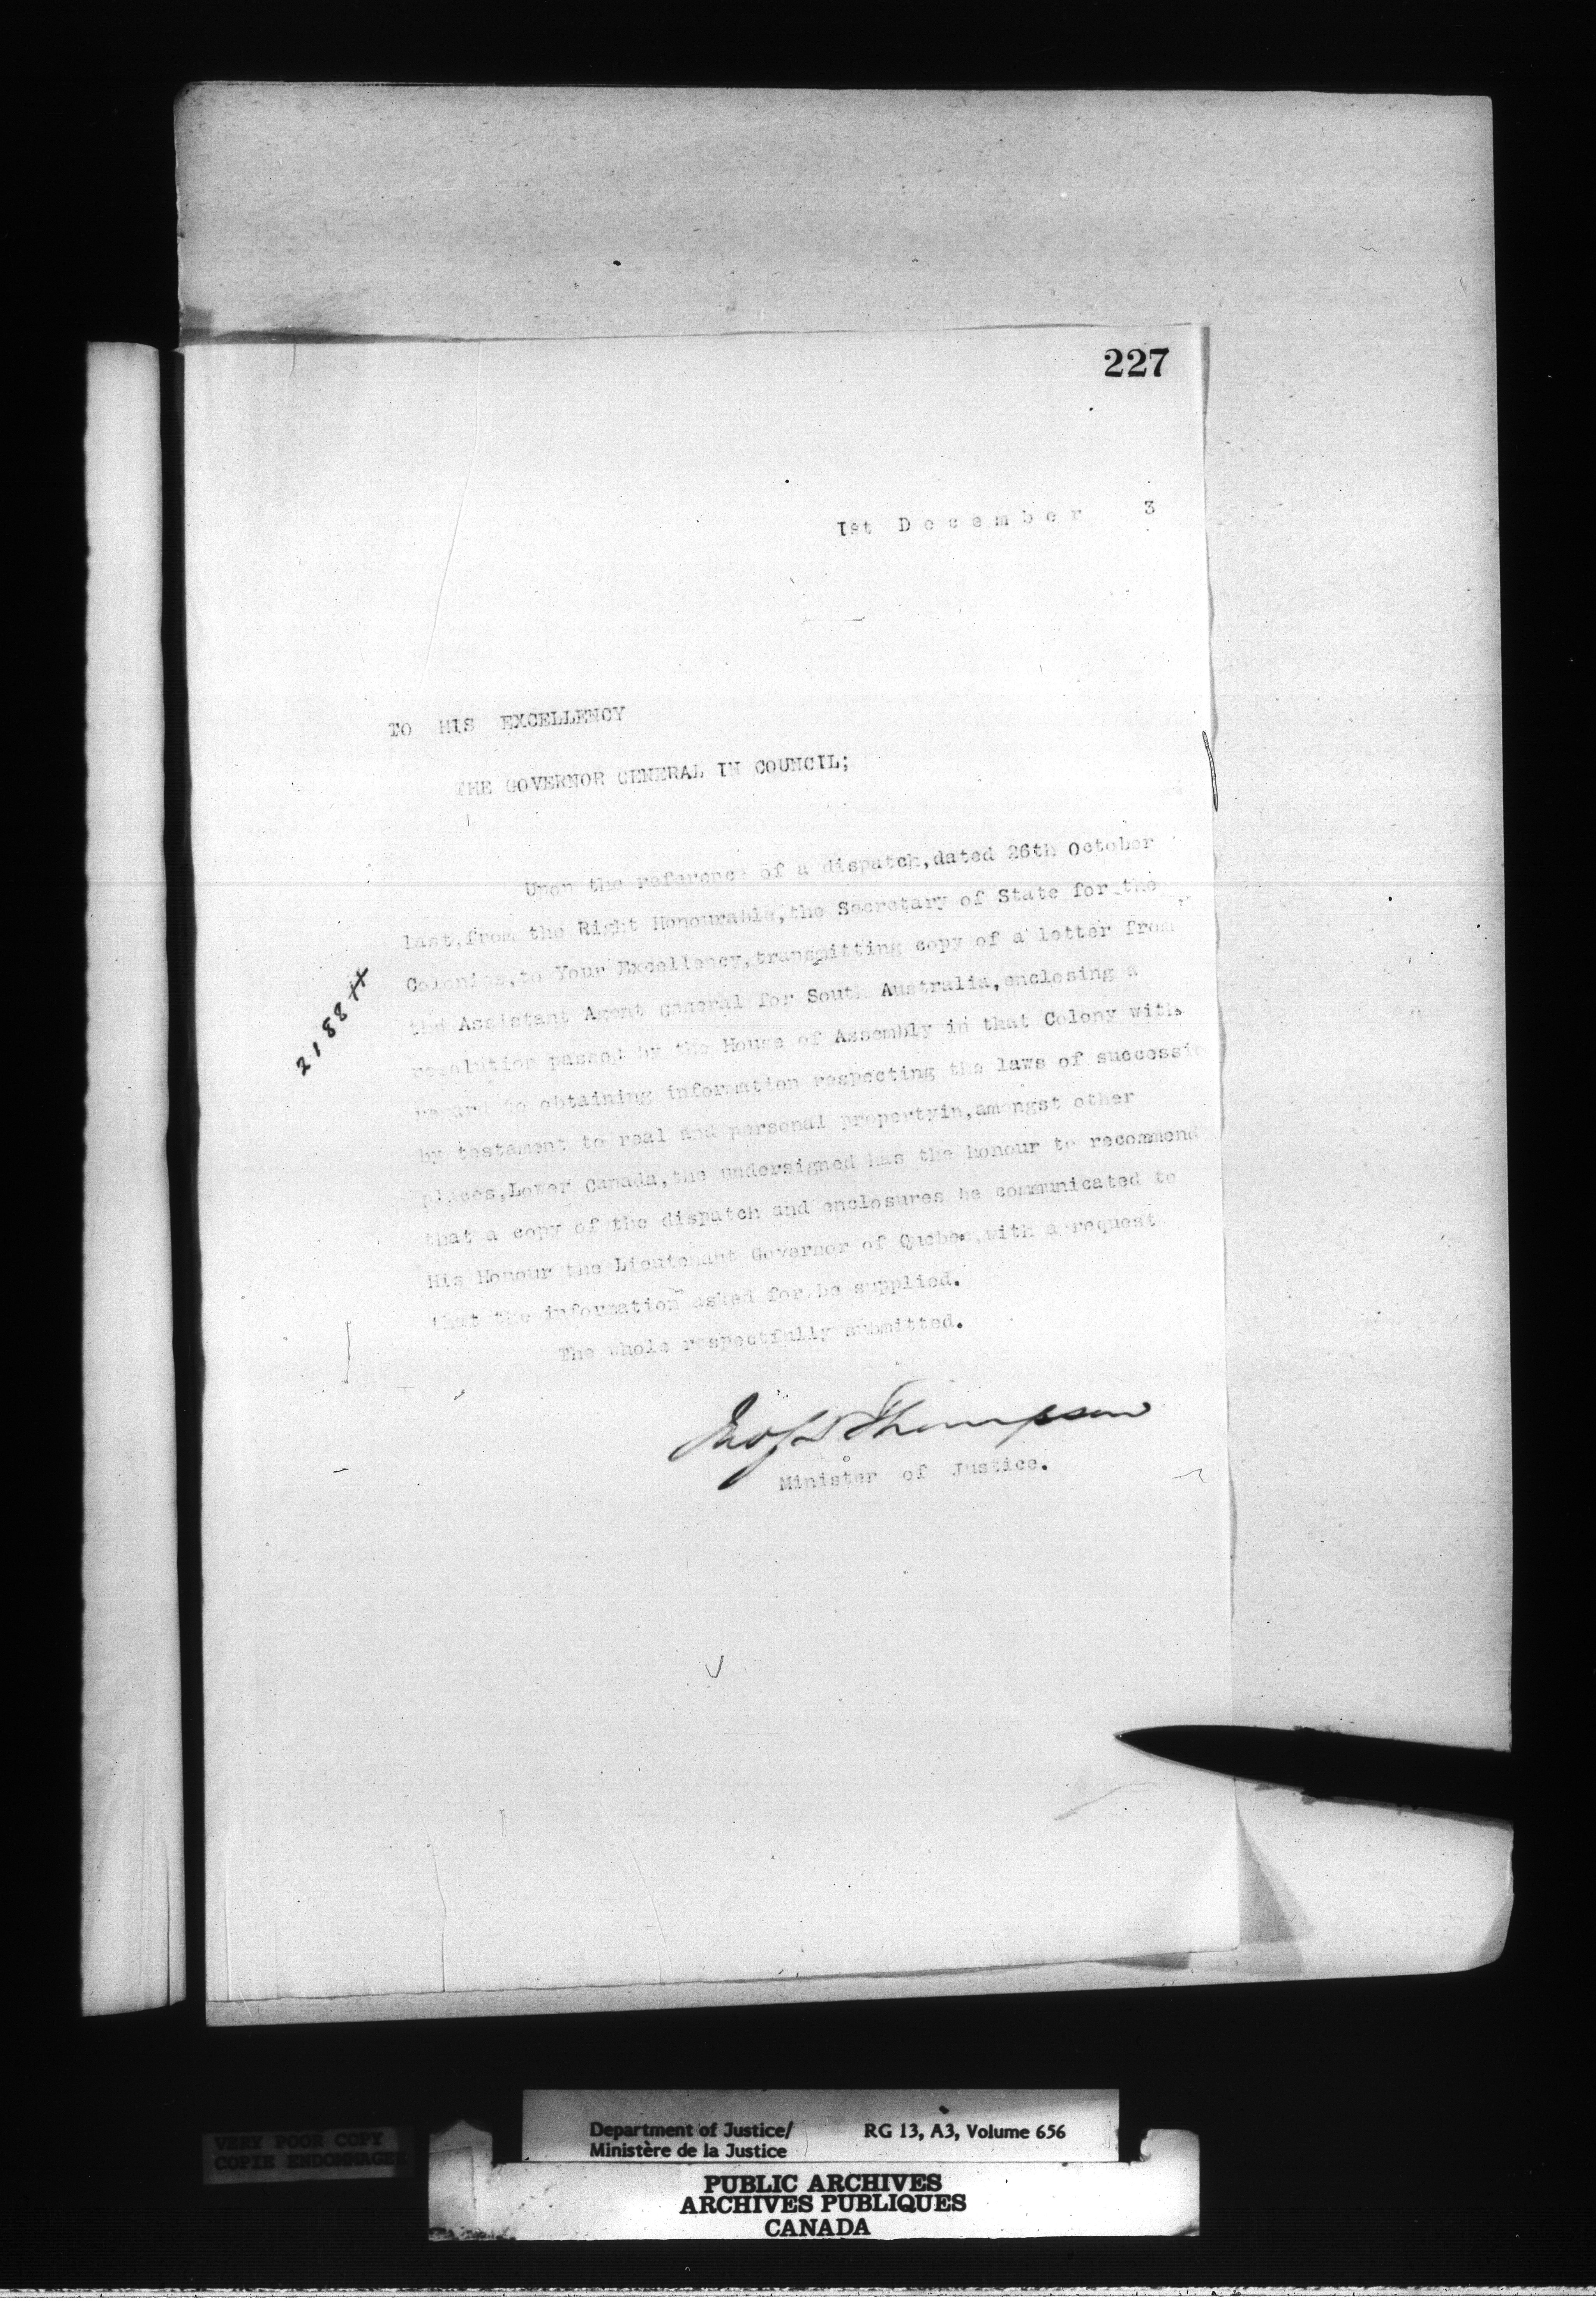 227
1st December 3
TO HIS EXCELLENCY
THE GOVERNOR GENERAL IN COUNCIL;
Upon the reference of a dispatch,dated 26th October
last,from the Right Honourable,the Secretary of State for the
Colonies,to Your Excellency,transmitting copy of a letter from
the Assistant Agent General for South Australia,enclosing a
resolution passed by the House of Assembly in that Colony with
regard to obtaining information respecting the laws of successio
by testament to real and personal propertyin,amongst other
places,Lower Canada,the undersigned has the honour to recommend
that a copy of the dispatch and enclosures be communicated to
His Honour the Lieutenant Governor of Quebec,with a request
that the information asked for be supplied.
The whole respectfully submitted.
Jno S D Thompson
Minister of Justice.
2188
Department of Justice/ RG 13, A3, Volume 656
Ministère de la Justice
PUBLIC ARCHIVES
ARCHIVES PUBLIQUES
CANADA
VERY POOR COPY
COPIE ENDOMMAGEE